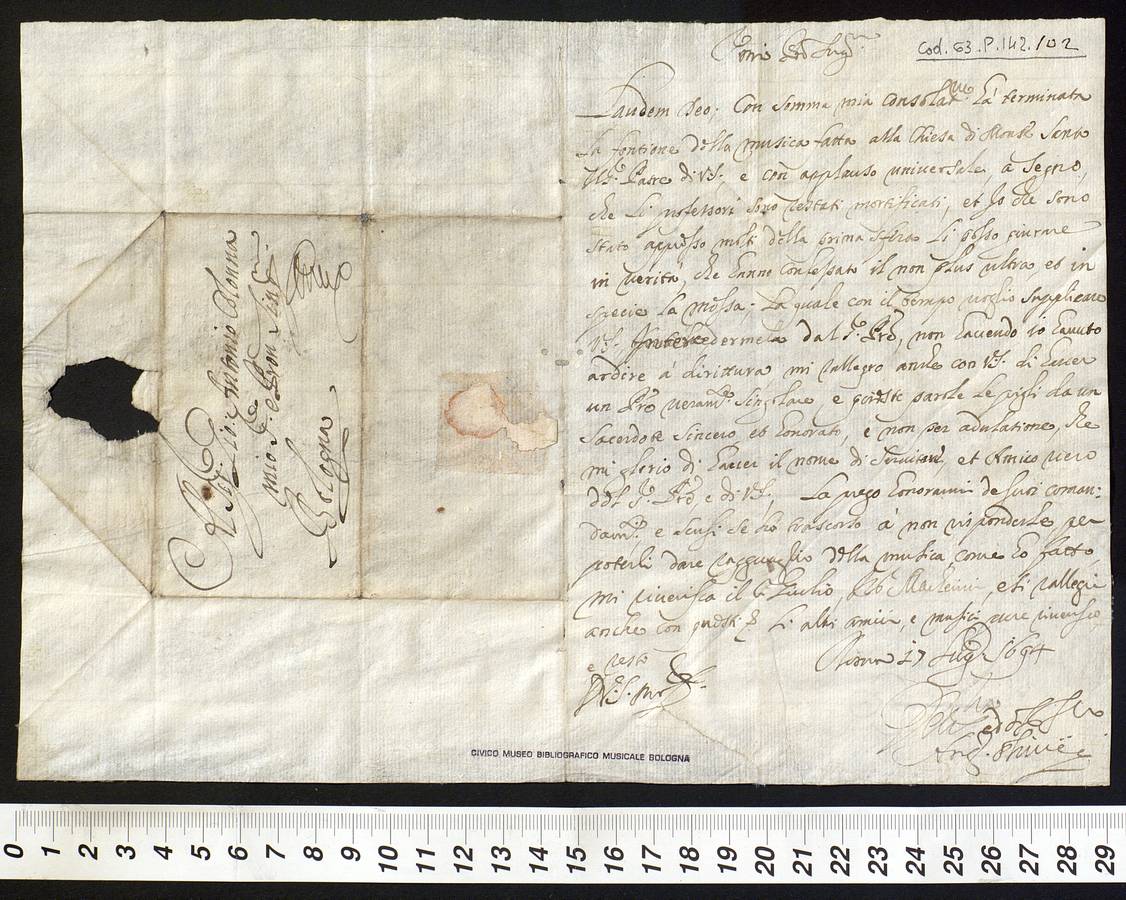 Cod. G3.P.142./02
Laudem Deo; Con somma mia consolat.ne hà terminata
la fontione della musica fatta alla Chiesa di Mons.r Santo
Padre di V.S. e con applauso universale, à segno,
che li professori sono restati mortificati, et Io che sono
stato appresso molti della prima sfera li posso giurare
in verità, che hanno confessato il non plus ultra et in
specie la messa; la quale con il tempo voglio supplicare
V.S. Intercedermela dal S.r Pre, non havendo io hauuto
ardire à dirittura, mi rallegro anche con V.S. di haver
un Pre veram.te singolare e queste parole le pigli da un
sacerdote sincero, et honorato, e non per adulatione, che
mi glorio di haver il nome di et Amico vero
del S.r Pre e di V.S. La prego honorarmi de suoi coman:
dam.ti e scusi se ho trascorso à non risponderle per
poterli dare ragguaglio della musica, come ho fatto
mi riverisca il S. Giulio, e si rallegri
anche con questi li altri amici, e musici pure riverisco
e resto Roma 17 Lug.o 1694
D V.S. M
Al Sig.r Gio: Antonio Colonna
mio Sig.r e Pron Sing.mo
Bologna
CIVICO MUSEO BIBLIOGRAFICO MUSICALE BOLOGNA
0 1 2 3 4 5 6 7 8 9 10 11 12 13 14 15 16 17 18 19 20 21 22 23 24 25 26 27 28 29